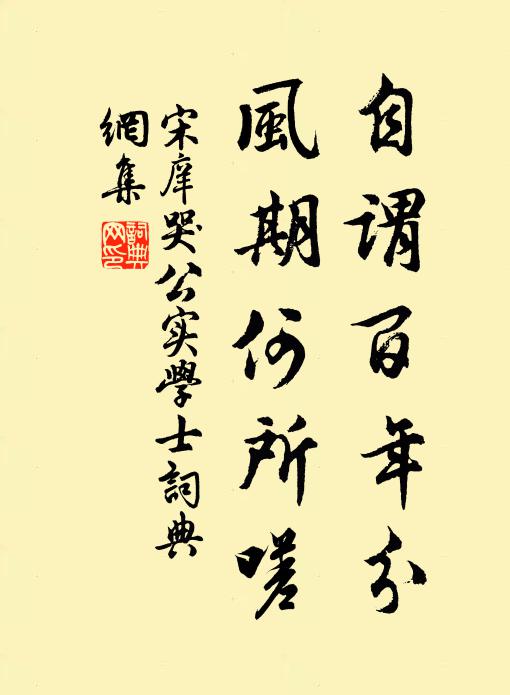 自謂百年分
風期何所嗟
宋庠哭公实學士詞典
網集
詞典網印